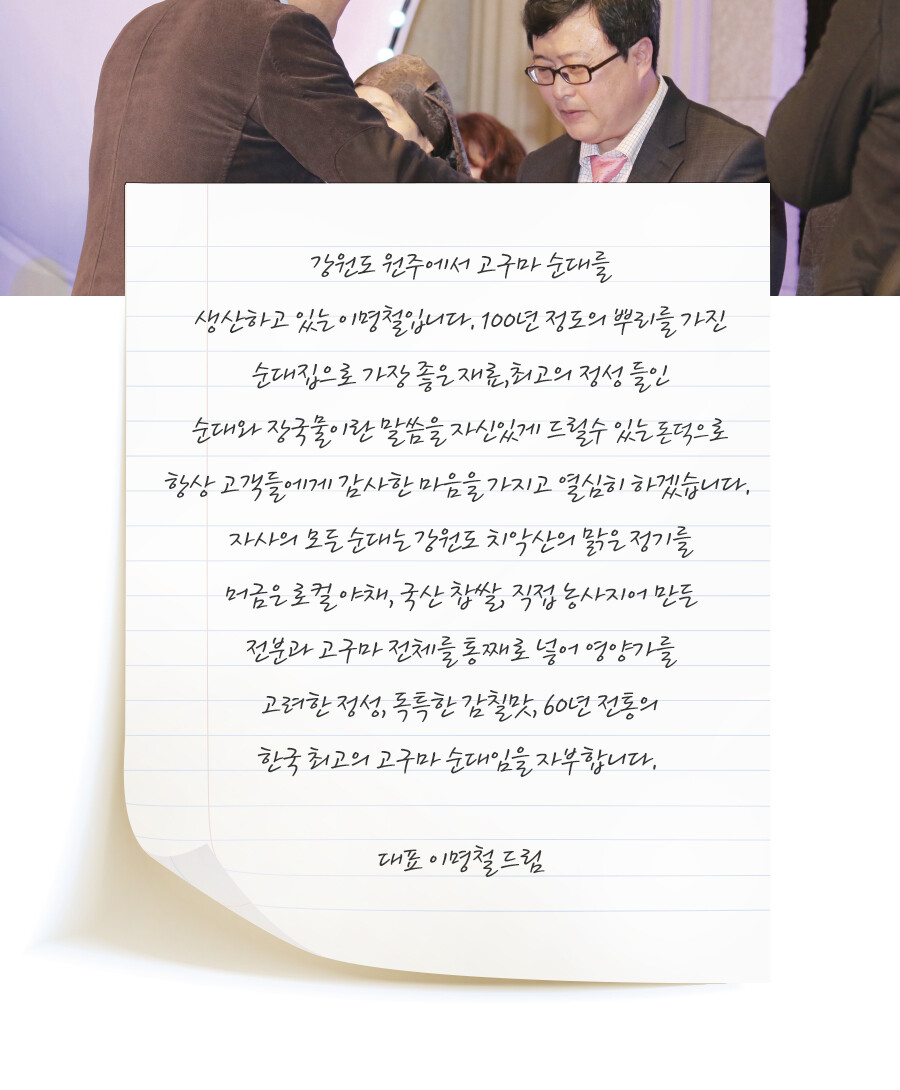 강원도 원주에서 고구마 순대를
생산하고 있는 이명철입니다. 100년 정도의 뿌리를 가진
순대집으로 가장 좋은 재료,최고의 정성 들인
순대와 장국물이란 말씀을 자신있게 드릴수 있는 돈덕으로
항상 고객들에게 감사한 마음을 가지고 열심히 하겠습니다.
자사의 모든 순대는 강원도 치악산의 맑은 정기를
머금은 로컬 야채, 국산 찹쌀, 직접 농사지어 만든
전분과 고구마 전체를 통째로 넣어 영양가를
고려한 정성, 독특한 감칠맛, 60년 전통의
한국 최고의 고구마 순대임을 자부합니다.
대표 이명철 드림